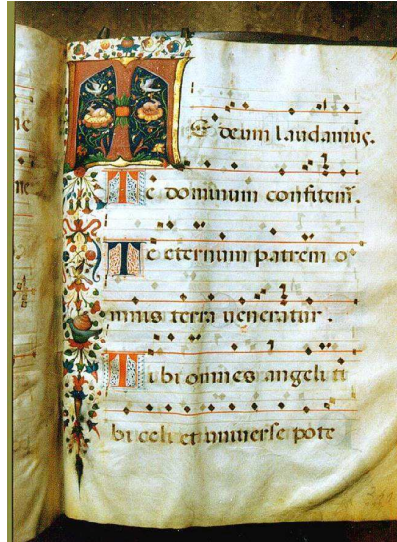 TE deum laudamus.
Te dominum confitem̃.
Te eternum patrem o
mnis terra ueneratur.
Tibi omnes angeli ti
bi celi et uniuerse pote